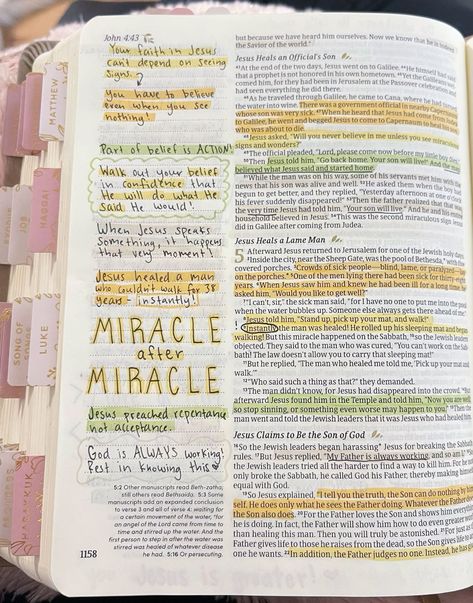 John 4:43
Your faith in Jesus
can't depend on seeing
signs.
you have to believe
even when you see
nothing!
Part of belief is ACTION!
Walk out your belief
in confidence that
He will do what He
said He would!
When Jesus speaks
something, it happens
that very moment!
Jesus healed a man
who couldn't walk for 38
years - instantly!
MIRACLE
after
MIRACLE
Jesus preached repentance
not acceptance.
God is ALWAYS working!
Rest in knowing this
5:2 Other manuscripts read Beth-zatha;
still others read Bethsaida. 5:3 Some
manuscripts add an expanded conclusion
to verse 3 and all of verse 4: waiting for
a certain movement of the water, 4for
an angel of the Lord came from time to
time and stirred up the water. And the
first person to step in after the water was
stirred was healed of whatever disease
he had. 5:16 Or persecuting.
1158
but because we have heard him ourselves. Now we know that he is indeed
the Savior of the world."
Jesus Heals an Official's Son
43At the end of the two days, Jesus went on to Galilee. 44He himself had said
that a prophet is not honored in his own hometown. 45Yet the Galileans
him, for they had been in Jerusalem at the Passover celebration and
had seen everything he did there.
46As he traveled through Galilee, he came to Cana, where he had turned
the water into wine. There was a government official in nearby Capernaum
whose son was very sick. 47When he heard that Jesus had come from
to Galilee, he went and begged Jesus to come to Capernaum to heal his son,
who was about to die.
48Jesus asked, "Will you never believe in me unless you see miraculous
signs and wonders?"
49The official pleaded, "Lord, please come now before my little boy dies."
50Then Jesus told him, "Go back home. Your son will live!" And the man
believed what Jesus said and started home.
51While the man was on his way, some of his servants met him with the
news that his son was alive and well. 52He asked them when the boy had
begun to get better, and they replied, "Yesterday afternoon at one o'clock
his fever suddenly disappeared!" 53Then the father realized that that was
the very time Jesus had told him, "Your son will live." And he and his entire
household believed in Jesus. 54This was the second miraculous sign Jesus
did in Galilee after coming from Judea.
Jesus Heals a Lame Man
5 Afterward Jesus returned to Jerusalem for one of the Jewish holy days.
2Inside the city, near the Sheep Gate, was the pool of Bethesda,* with five
covered porches. 3Crowds of sick people—blind, lame, or paralyzed—lay
on the porches.* 5One of the men lying there had been sick for thirty-eight
years. 6When Jesus saw him and knew he had been ill for a long time, he
asked him, "Would you like to get well?"
7"I can't, sir," the sick man said, "for I have no one to put me into the pool
when the water bubbles up. Someone else always gets there ahead of me."
8Jesus told him, "Stand up, pick up your mat, and walk!"
9Instantly, the man was healed! He rolled up his sleeping mat and began
walking! But this miracle happened on the Sabbath, 10so the Jewish leaders
objected. They said to the man who was cured, "You can't work on the Sabbath!
The law doesn't allow you to carry that sleeping mat!"
11But he replied, "The man who healed me told me, 'Pick up your mat and
walk.'"
12"Who said such a thing as that?" they demanded.
13The man didn't know, for Jesus had disappeared into the crowd. 14But
afterward Jesus found him in the Temple and told him, "Now you are well;
so stop sinning, or something even worse may happen to you." 15Then the
man went and told the Jewish leaders that it was Jesus who had healed him.
Jesus Claims to Be the Son of God
16So the Jewish leaders began harassing* Jesus for breaking the Sabbath
rules. 17But Jesus replied, "My Father is always working, and so am I." 18So
the Jewish leaders tried all the harder to find a way to kill him. For he not
only broke the Sabbath, he called God his Father, thereby making himself
equal with God.
19So Jesus explained, "I tell you the truth, the Son can do nothing by
self. He does only what he sees the Father doing. Whatever the Father does,
the Son also does. 20For the Father loves the Son and shows him everything
he is doing. In fact, the Father will show him how to do even greater works
than healing this man. Then you will truly be astonished. 21For just as the
Father gives life to those he raises from the dead, so the Son gives life to
he wants. 22In addition, the Father judges no one. Instead, he has
MATTHEW
JOB
SONG OF
LUKE